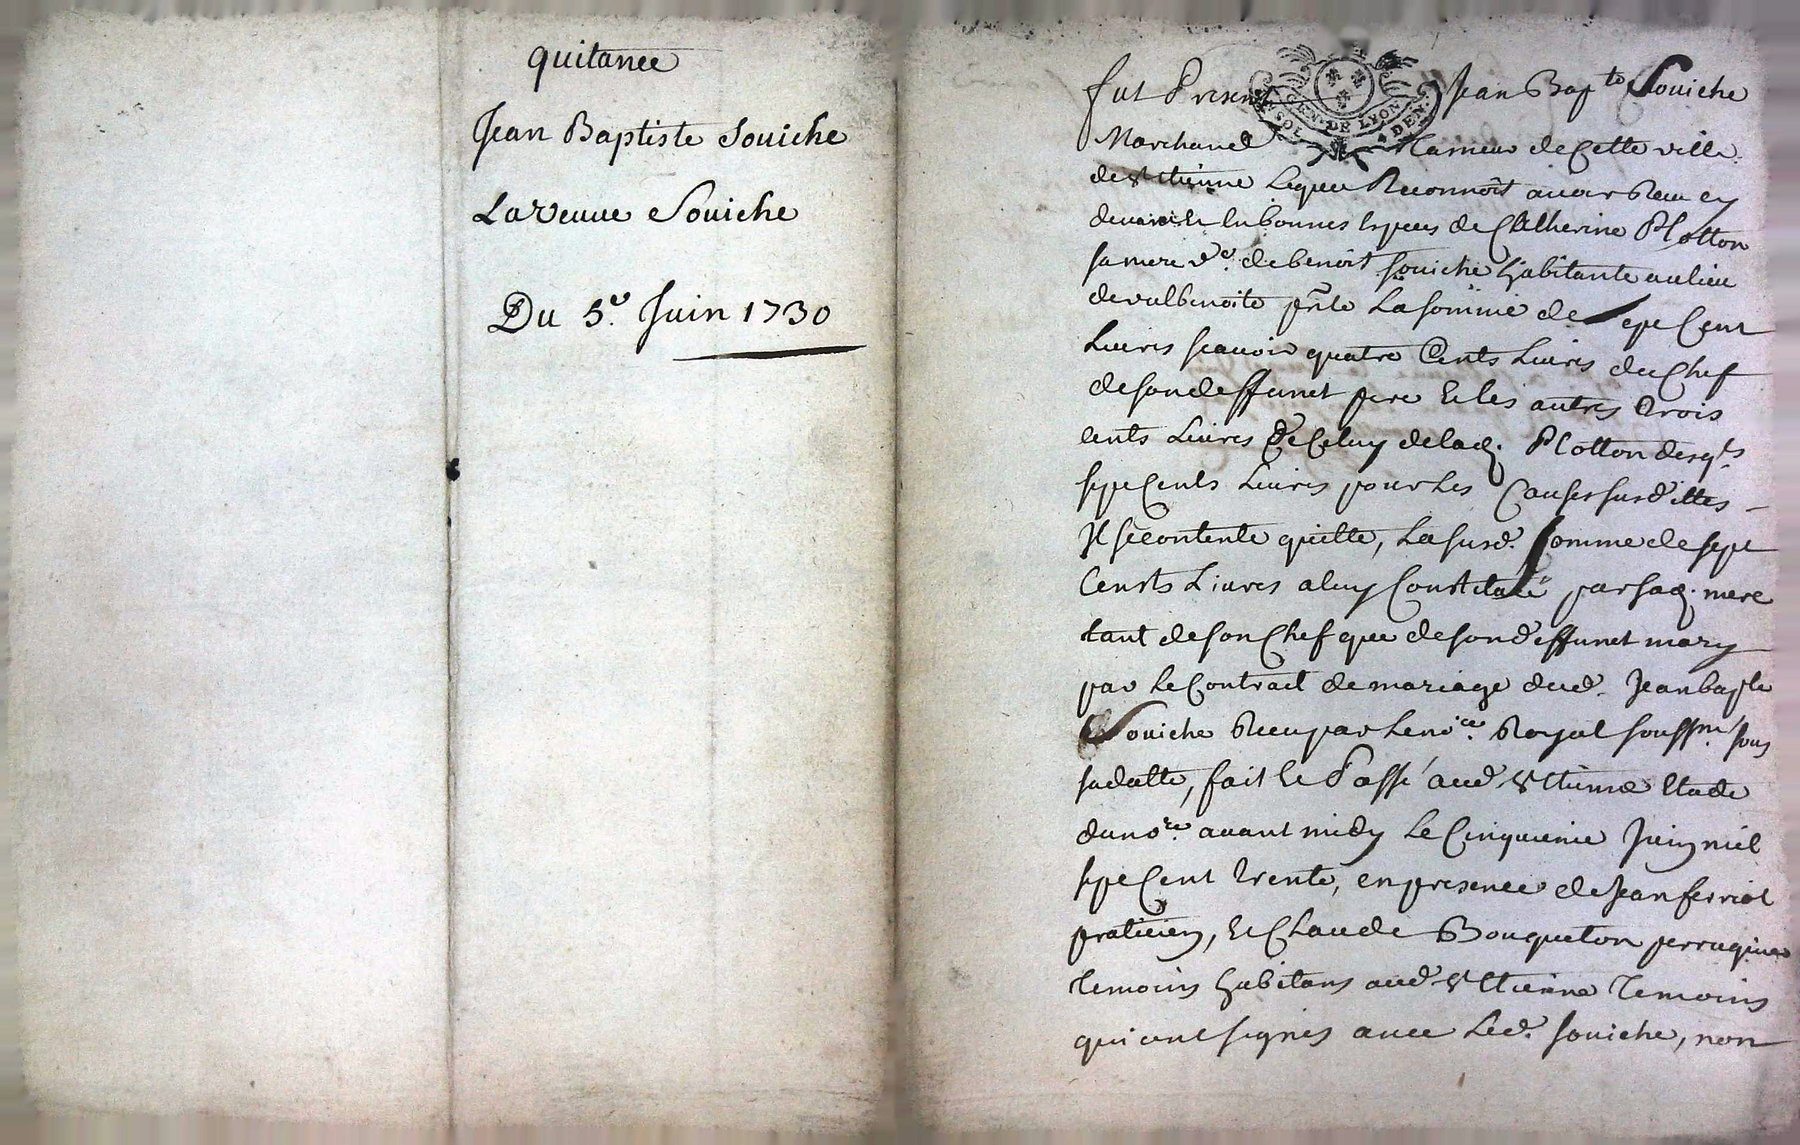 quitance
Jean Baptiste Souiche
La veuve Souiche
Du 5.e Juin 1730
fut Present Jean Bapte Souiche
GEN. DE LYON
SOL DEN.
Marchand Lameur de Cette ville
de St Etienne Lequel Reconnoit avoir Receu en
deniers Et En bonnes Especes de Catherine Plotton
sa mere ve. de benoit Souiche habitante au lieu
de valbenoite pnte La somme de Sept Cent
Livres scavoir quatre Cents Livres du Chef
de son deffunct pere Et les autres Trois
cents Livres de Celuy de lad. Plotton desqts
sept Cents Livres pour Les Causes susdittes
Il se contente quitte, La susd. Somme de sept
Cents Livres a luy Constituée par sad. mere
tant de son Chef que de son deffunct mary
par Le Contract de mariage dud. Jean bapte
Souiche Receu par Le nore Royal soussné sous
sa datte, fait Et Passé aud. St Etienne Etude
du nore. avant midy Le Cinquieme Juin mil
sept Cent Trente, en presence de Jean ferriol
praticien, Et Claude Bouqueton perruquier
Temoins habitans aud. St Etienne Temoins
qui ont signés avec Led. Souiche, non